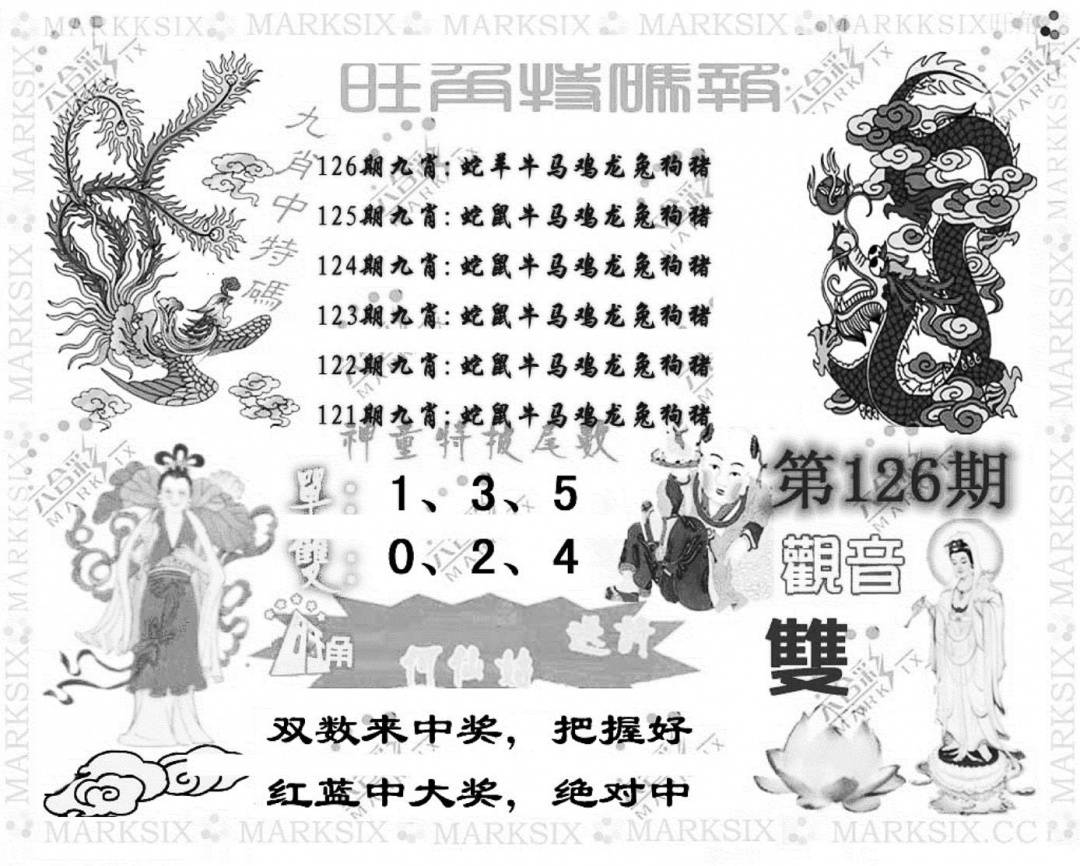 旺角特碼報
九肖中特碼
126期九肖:蛇羊牛马鸡龙兔狗猪
125期九肖:蛇鼠牛马鸡龙兔狗猪
124期九肖:蛇鼠牛马鸡龙兔狗猪
123期九肖:蛇鼠牛马鸡龙兔狗猪
122期九肖:蛇鼠牛马鸡龙兔狗猪
121期九肖:蛇鼠牛马鸡龙兔狗猪
神童特报尾数
單:1、3、5
雙:0、2、4
第126期
觀音
雙
旺角
何仙姑
双数来中奖，把握好
红蓝中大奖，绝对中
MARKSIX MARKSIX MARKSIX MARKSIX MARKSIX.CC